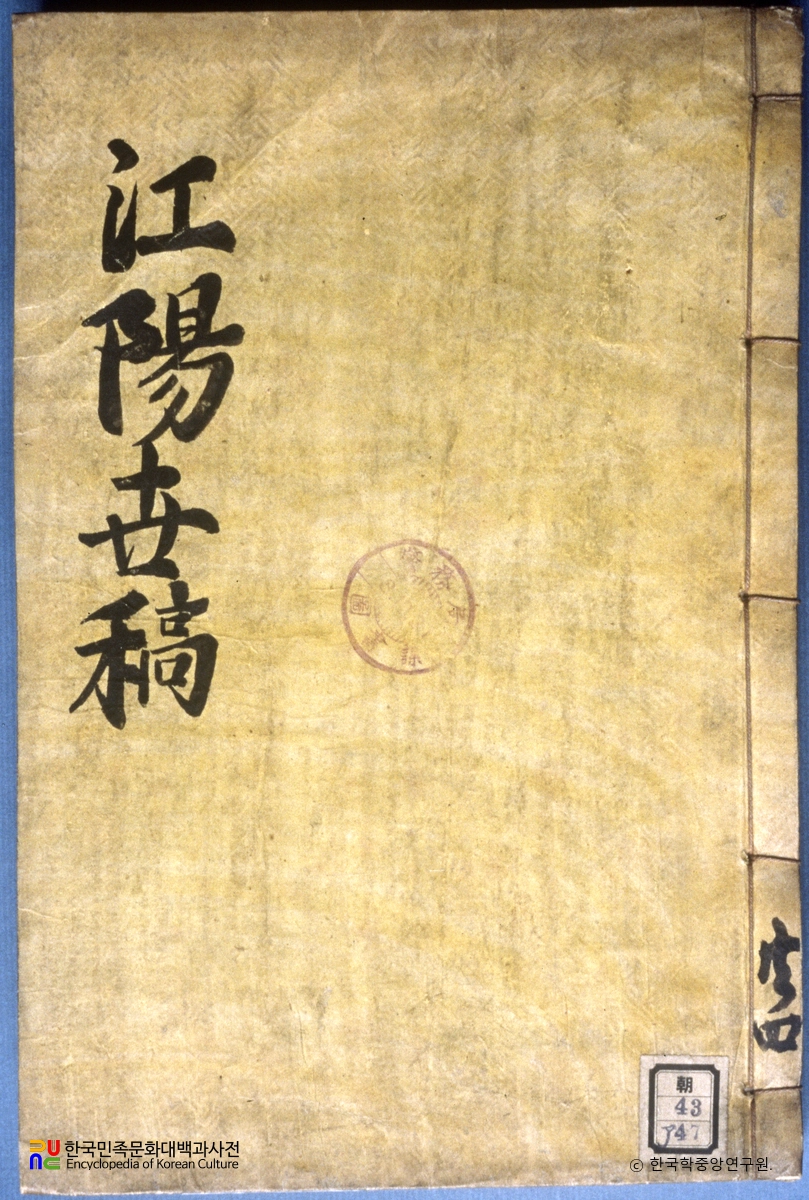 江陽世稿
共四
朝
43
한국민족문화대백과사전
Encyclopedia of Korean Culture
© 한국학중앙연구원.